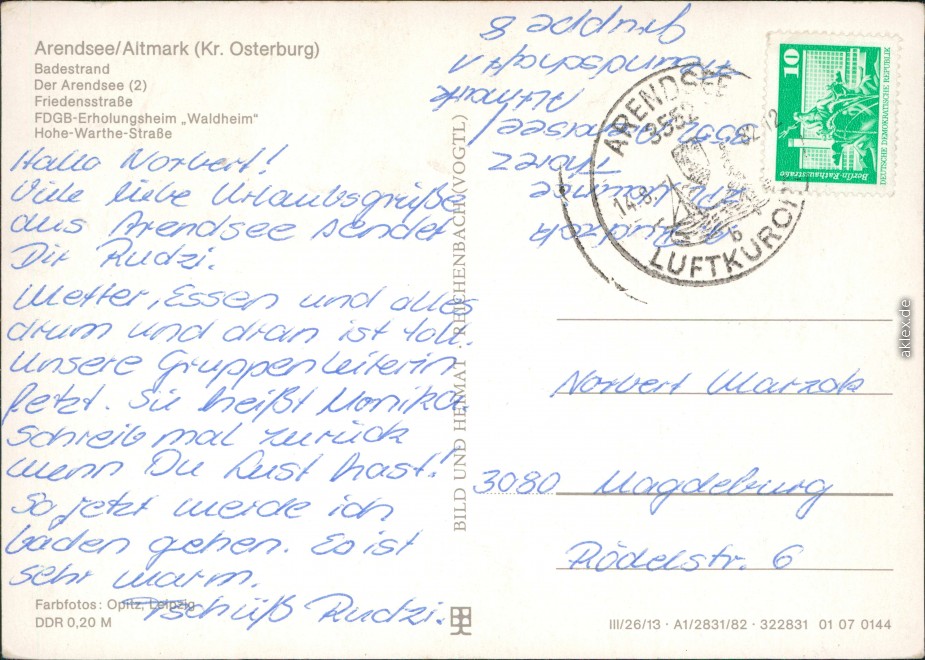 Arendsee/Altmark (Kr. Osterburg)
Badestrand
Der Arendsee (2)
Friedensstraße
FDGB-Erholungsheim „Waldheim"
Hohe-Warthe-Straße
Hallo Norbert!
Viele liebe Urlaubsgrüße
aus Arendsee sendet
Dir Rudzi.
Wetter, Essen und alles
drum und dran ist toll.
Unsere Gruppenleiterin
fetzt. Sie heißt Monika.
Schreib mal zurück
wenn Du Lust hast!
So jetzt werde ich
baden gehen. Es ist
sehr warm.
Tschüß Rudzi.
Farbfotos: Opitz, Leipzig
DDR 0,20 M
BILD UND HEIMAT REICHENBACH (VOGTL)
Maurice
Thorez
3552 Arendsee/
Altmark
Freundschaft 1
gruppe 8
ARENDSEE
14.8.
b
LUFTKURORT
10
DEUTSCHE DEMOKRATISCHE REPUBLIK
Berlin-Rathausstrasse
Norbert Marzak
3080 Magdeburg
Rödelstr. 6
III/26/13 · A1/2831/82 · 322831 01 07 0144
aklex.de